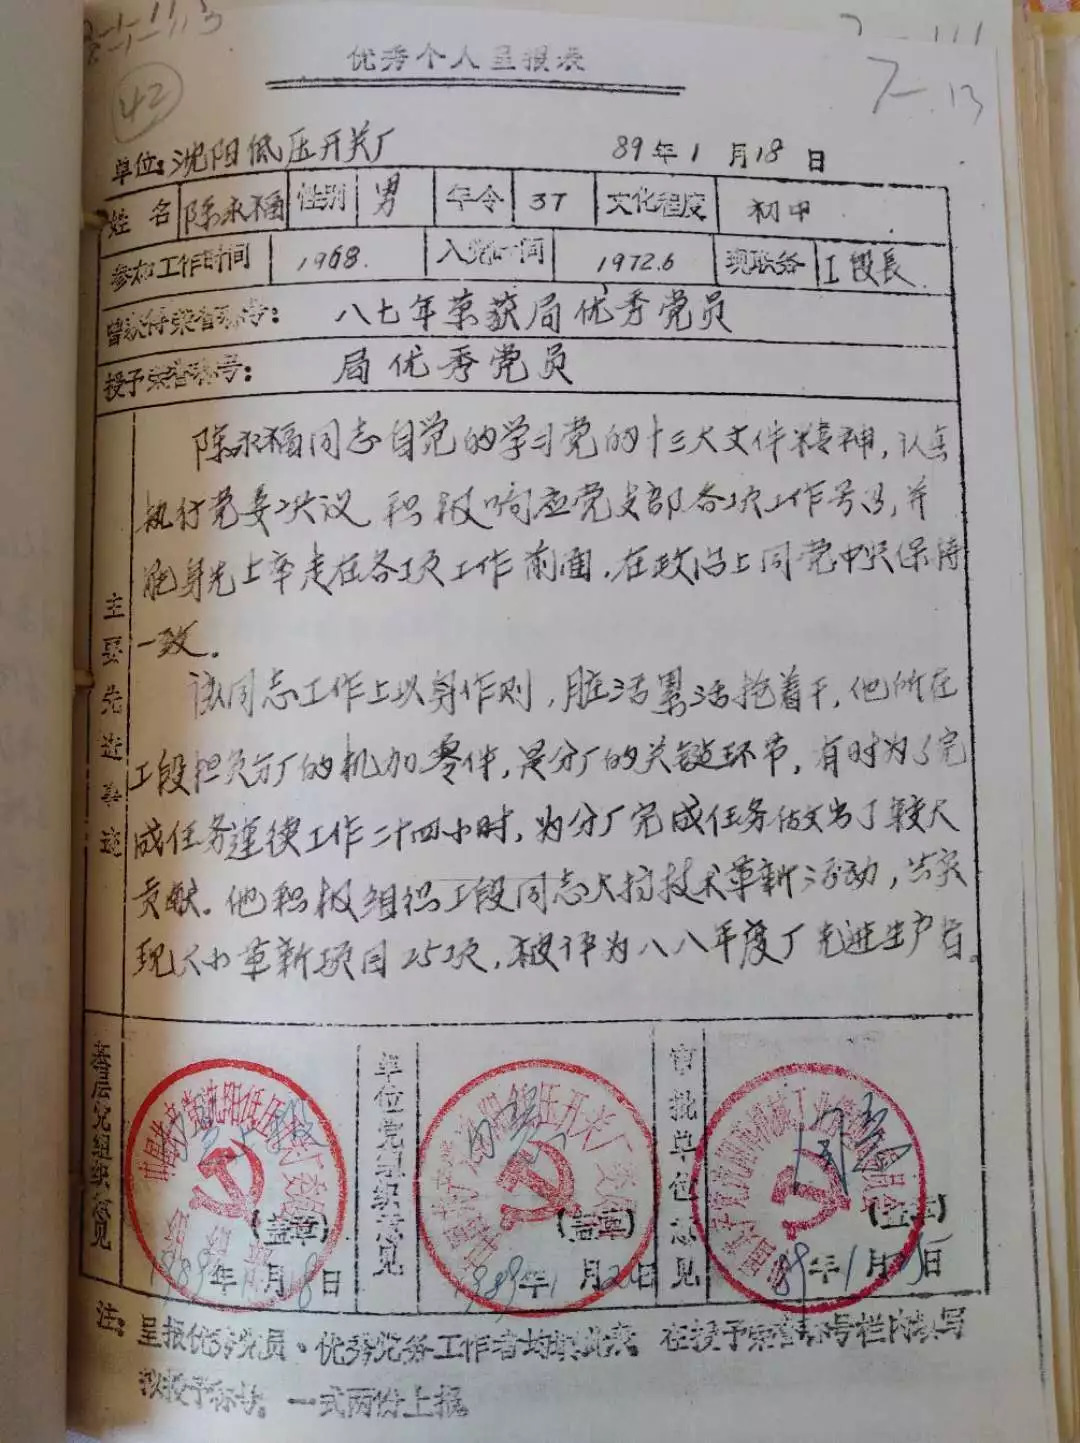 42
7-13
优秀个人呈报表
单位：沈阳低压开关厂 89年1月18日
姓名 陈永福 性别 男 年令 37 文化程度 初中
参加工作时间 1968. 入党时间 1972.6 现职务 工段長
曾获得荣誉称号： 八七年荣获局优秀党员
授予荣誉称号： 局优秀党员
主要先进事迹
陈永福同志自觉的学习党的十三大文件精神，认真
执行党委决议 积极响应党支部各项工作号召，并
能身先士卒走在各项工作前面，在政治上同党中央保持
一致。
该同志工作上以身作则，脏活累活抢着干，他所在
工段担负分厂的机加零件，是分厂的关键环节，有时为了完
成任务连续工作二十四小时，为分厂完成任务做出了较大
贡献。他积极组织工段同志大搞技术革新活动，共实
现大小革新项目25项，被评为八八年度厂先进生产者。
基层党组织意见 (盖章) 1989年1月18日
单位党组织意见 同意 (盖章) 1989年1月20日
审批单位意见 同意 (盖章) 89年1月 日
注：呈报优秀党员、优秀党务工作者均填此表。在授予荣誉称号栏内填写
拟授予称号。一式两份上报。